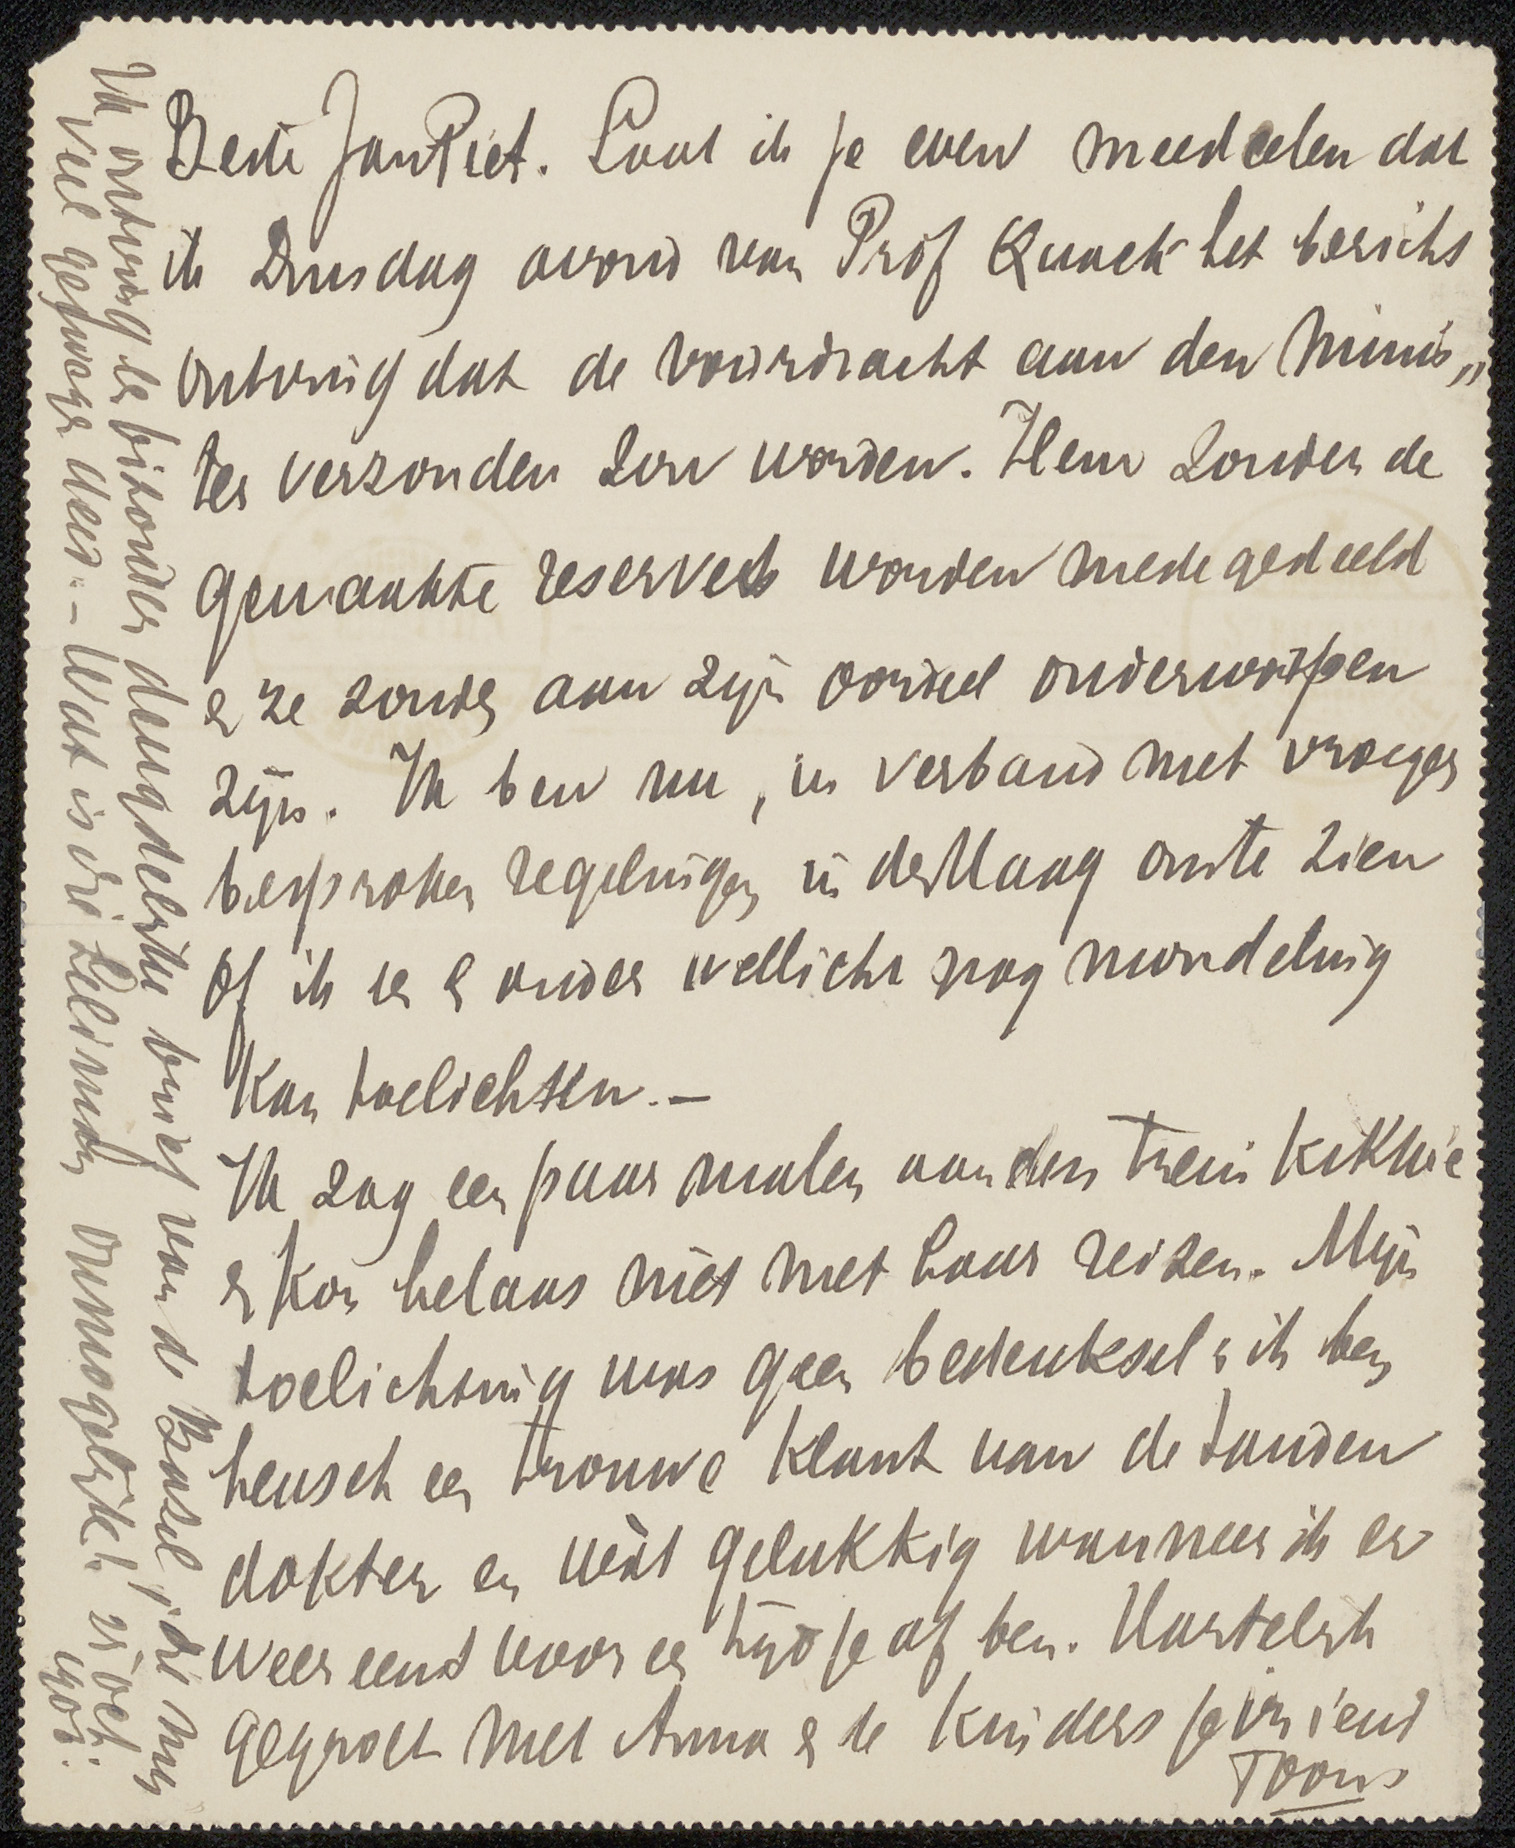 Beste Jan Piet. Laat ik je even meedeelen dat
ik Dinsdag avond van Prof Quack het bericht
ontving dat de voordracht aan den Minis„
ter verzonden zou worden. Hem zouden de
gemaakte reserves worden medegedeeld
& ze zouden aan zijn oordeel onderworpen
zijn. Ik ben nu, in verband met vroeger
besproken regelingen in den Haag om te zien
of ik een & ander wellicht nog mondeling
kan toelichten. —
Ik zag een paar malen aan den trein
& kon helaas niet met haar reizen. Mijn
toelichting was geen bedenksel & ik ben
heusch een trouwe klant van de tanden
dokter en wàt gelukkig wanneer ik er
weer eens voor een tijdje af ben. Hartelijk
gegroet met Anna & de kinders je vriend
Toon
Ik ontving de bizonder deugdelijke brief van de Bazel, die mij
veel genoegen deed. - Wat is die Zeldman onmogelijk! 21 Oct
1901.